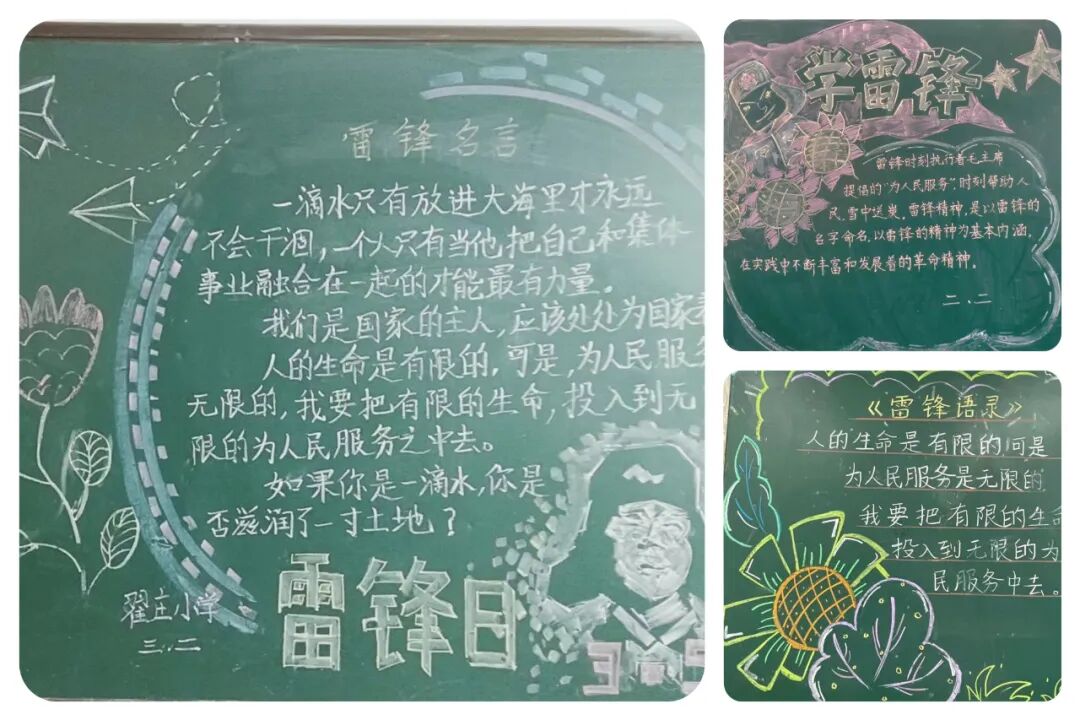 雷锋名言
一滴水只有放进大海里才永远
不会干涸，一个人只有当他把自己和集体
事业融合在一起的才能最有力量。
我们是国家的主人，应该处处为国家
人的生命是有限的，可是，为人民服务
无限的，我要把有限的生命，投入到无
限的为人民服务之中去。
如果你是一滴水，你是
否滋润了一寸土地？
雷锋日
翟庄小学
三.二
学雷锋
雷锋时刻执行着毛主席
提倡的"为人民服务"，时刻帮助人
民，雪中送炭，雷锋精神，是以雷锋的
名字命名，以雷锋的精神为基本内涵，
在实践中不断丰富和发展着的革命精神。
二.二
《雷锋语录》
人的生命是有限的，可是
为人民服务是无限的
我要把有限的生命
投入到无限的为
民服务中去。